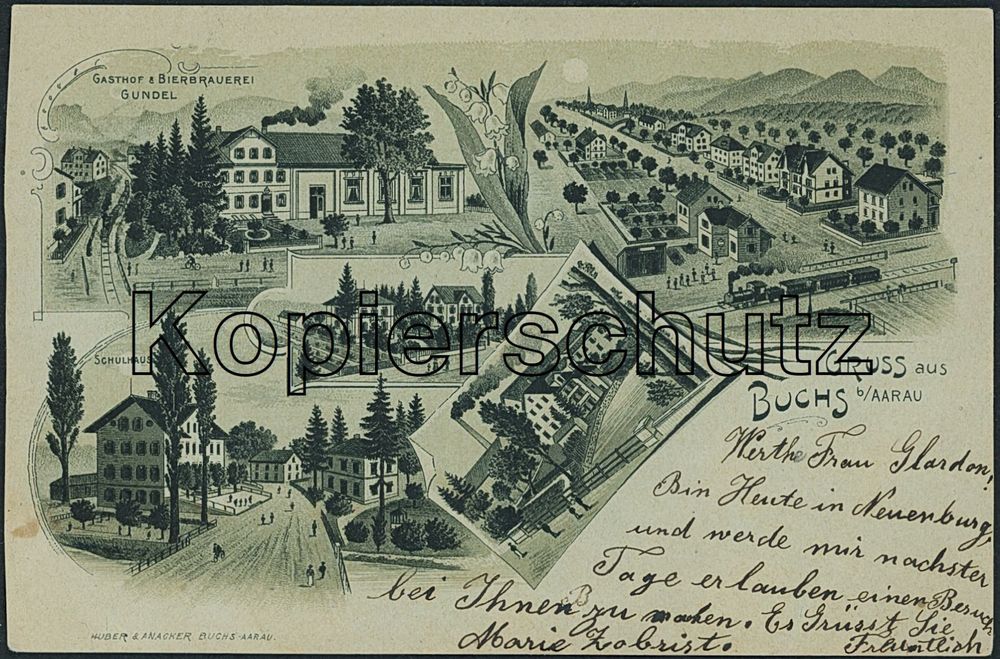 GASTHOF & BIERBRAUEREI
GUNDEL
SCHULHAUS
Kopierschutz
GRUSS AUS
BUCHS b/AARAU
Werthe Frau Glardon!
Bin Heute in Neuenburg,
und werde mir nachster
Tage erlauben einen Besuch
bei Ihnen zu machen. Es Grüsst Sie
Marie Zobrist. Freuntlich
HUBER & ANACKER BUCHS-AARAU.